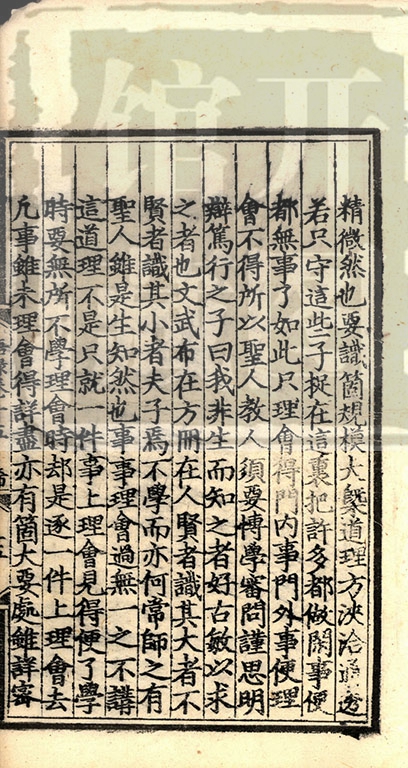 精微然也要識箇規模大槩道理方浹洽通透
若只守這些子捉在這裏把許多都做閑事便
都無事了如此只理會得門內事門外事便理
會不得所以聖人教人須要博學審問謹思明
辯篤行之子曰我非生而知之者好古敏以求
之者也文武布在方冊在人賢者識其大者不
賢者識其小者夫子焉不學而亦何常師之有
聖人雖是生知然也事事理會過無一之不講
這道理不是只就一件事上理會見得便了學
時要無所不學理會時却是逐一件上理會去
凡事雖未理會得詳盡亦有箇大要處雖詳密